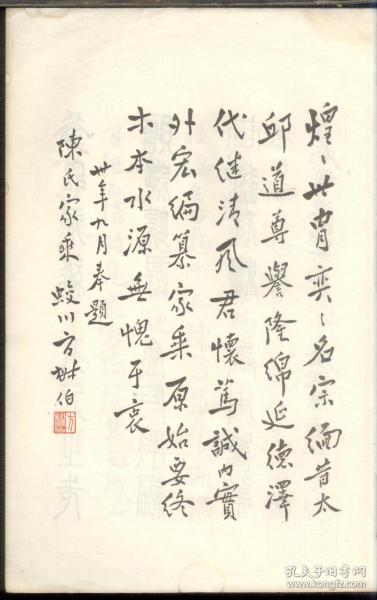 煌〻世胄奕〻名宗緬昔太
邱道尊譽隆綿延德澤
代继清風君懷篤誠内實
外宏编纂家乘原始要终
木本水源無愧于衷
卅年九月奉題
陳氏家乘 蛟川方椒伯
孔夫子旧书网